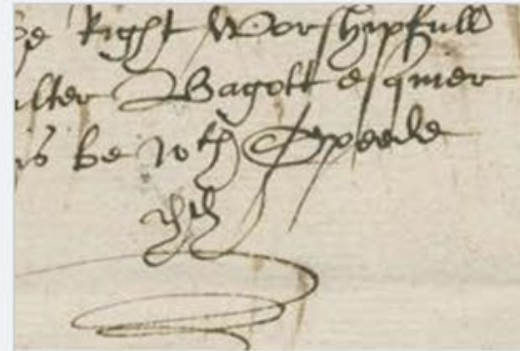 Right Worshipfull
Bagott esquier
be wth Speede